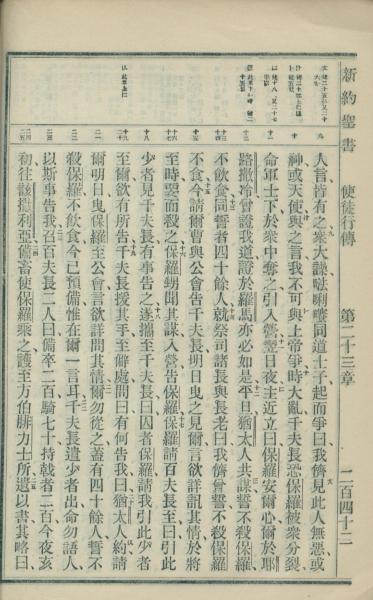 新約聖書 使徒行傳 第二十三章 二百四十二
人言皆有之、衆大譟、同道士子起而爭曰我儕見此人無惡、或
神或天使與之言、我不可與上帝爭、時大亂、千夫長恐保羅被衆分裂、
命軍士下、於衆中奪之引入營、翌日夜主近立曰、保羅安爾心、爾於耶
路撒冷曾證我道、證於羅馬亦必如是、平旦猶太人共謀、誓不殺保羅
不飲食、同誓者四十餘人、就祭司諸長與長老曰、我儕曾誓不殺保羅
不食、今請爾曹與公會告千夫長、明日曳之見爾、言欲詳訊其情、於將
至時、要而殺之、保羅甥聞其謀、入營告保羅、保羅請百夫長至曰、引此
少者見千夫長、有事告之、遂攜至千夫長曰、囚者保羅請我引此少者
至爾、欲有所告、千夫長援其手至僻處、問曰、有何告我、曰、猶太人約請
爾明日曳保羅至公會、言欲詳問其情、爾勿從之、蓋有四十餘人、誓不
殺保羅不飲食、今已預備、惟在爾一言耳、千夫長遣少者出、命勿語人
以斯事告我、召百夫長二人曰、備卒二百、騎七十、持戟者二百、今夜亥
初往該撒利亞、備畜使保羅乘之、護至方伯腓力士所、遺以書、其略曰、